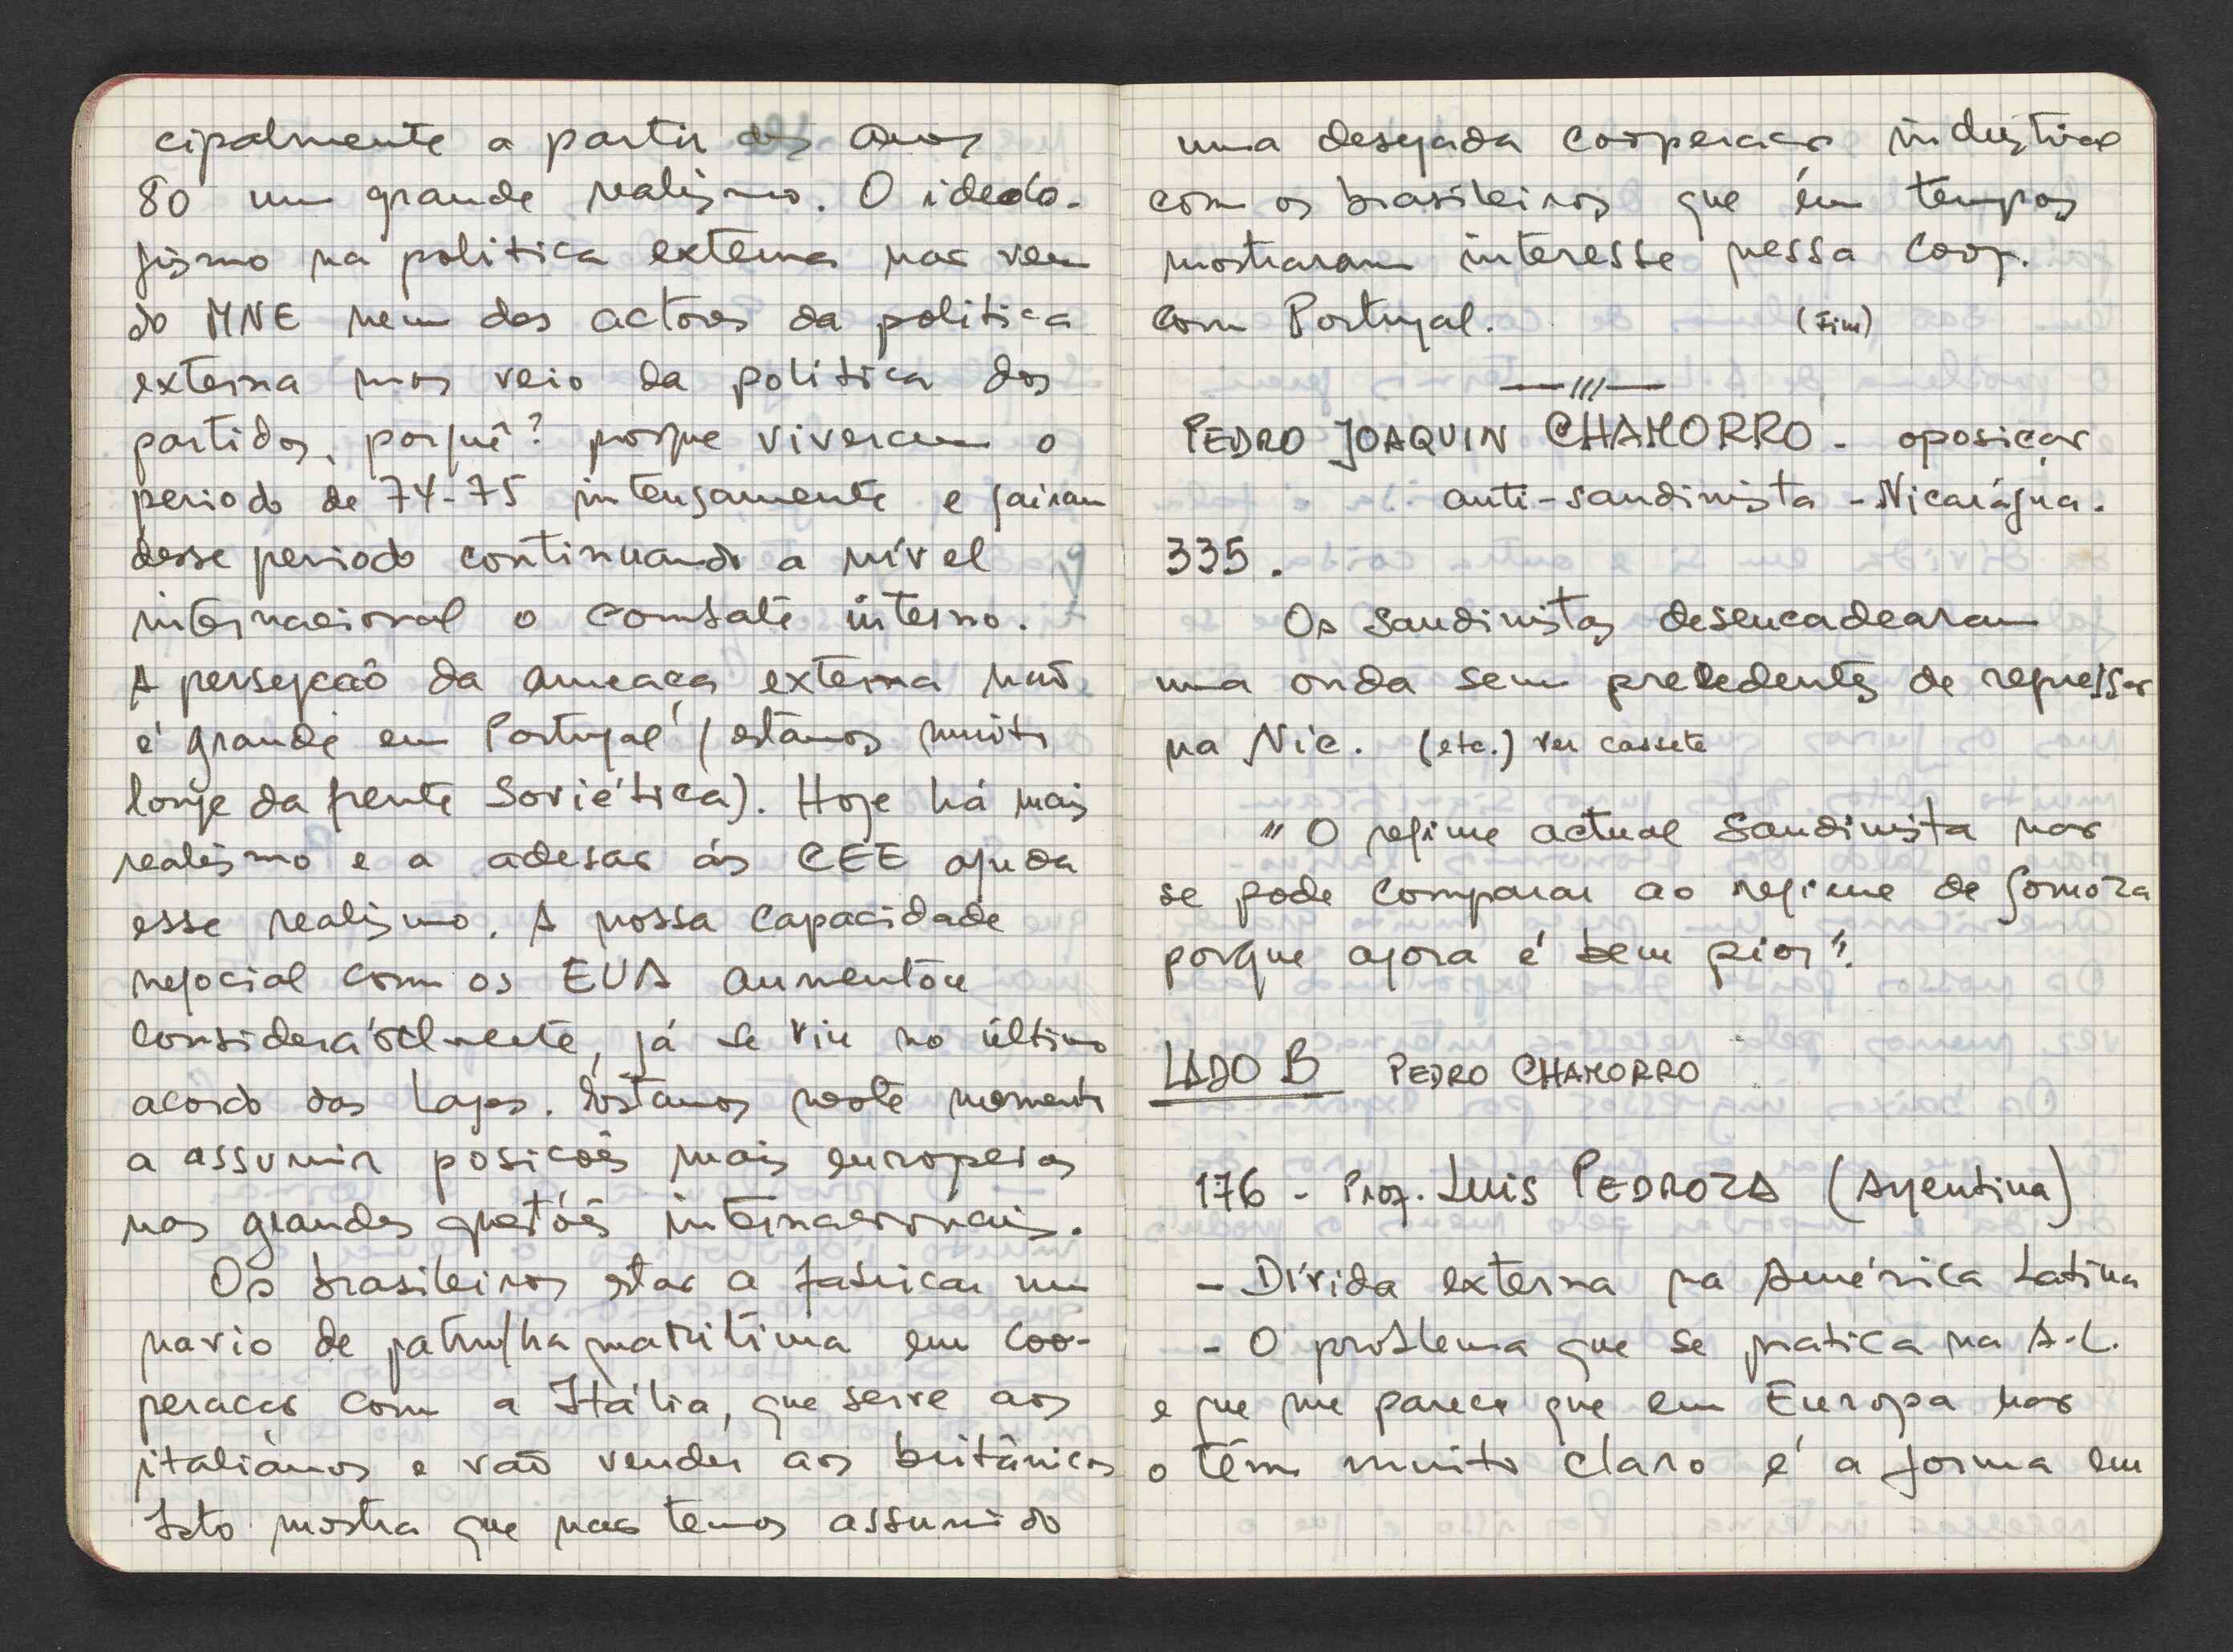 cipalmente a partir dos anos
80 um grande realismo. O ideolo-
gismo na politica externa não vem
do MNE nem dos actores da politica
externa mas veio da politica dos
partidos, porquê? porque viveram o
periodo de 74-75 intensamente e sairam
desse periodo continuando a nível
internacional o combate interno.
A persepção da ameaça externa não
é grande em Portugal (estamos muito
longe da frente Soviética). Hoje há mais
realismo e a adesão às CEE ajuda
esse realismo. A nossa capacidade
negocial com os EUA aumentou
consideravelmente, já se viu no último
acordo das Lajes. Estamos neste momento
a assumir posições mais europeias
nas grandes questões internacionais.
Os brasileiros estão a fabricar um
navio de patrulha maritima em coo-
peração com a Itália, que serve aos
italianos e vão vender aos britânicos
Isto mostra que não temos assumido
uma desejada cooperação industrial
com os brasileiros que em tempos
mostraram interesse nessa coop.
com Portugal. (Fim)
—///—
PEDRO JOAQUIN CHAMORRO - oposição
anti-sandinista - Nicarágua.
335.
Os Sandinistas desencadearam
uma onda sem precedentes de repressão
na Nic. (etc.) ver cassete
"O regime actual Sandinista não
se pode comparar ao regime de Somoza
porque agora é bem pior".
LADO B PEDRO CHAMORRO
176 - Prof. LUIS PEDROZA (Argentina)
- Dívida externa na América Latina
- O problema que se pratica na A.L.
e que me parece que em Europa não
o têm muito claro é a forma em